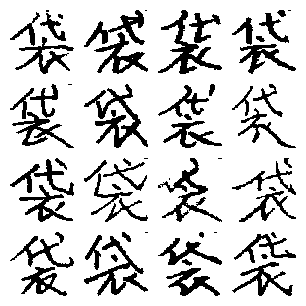 袋袋袋袋
袋袋袋袋
袋袋袋袋
袋袋袋袋